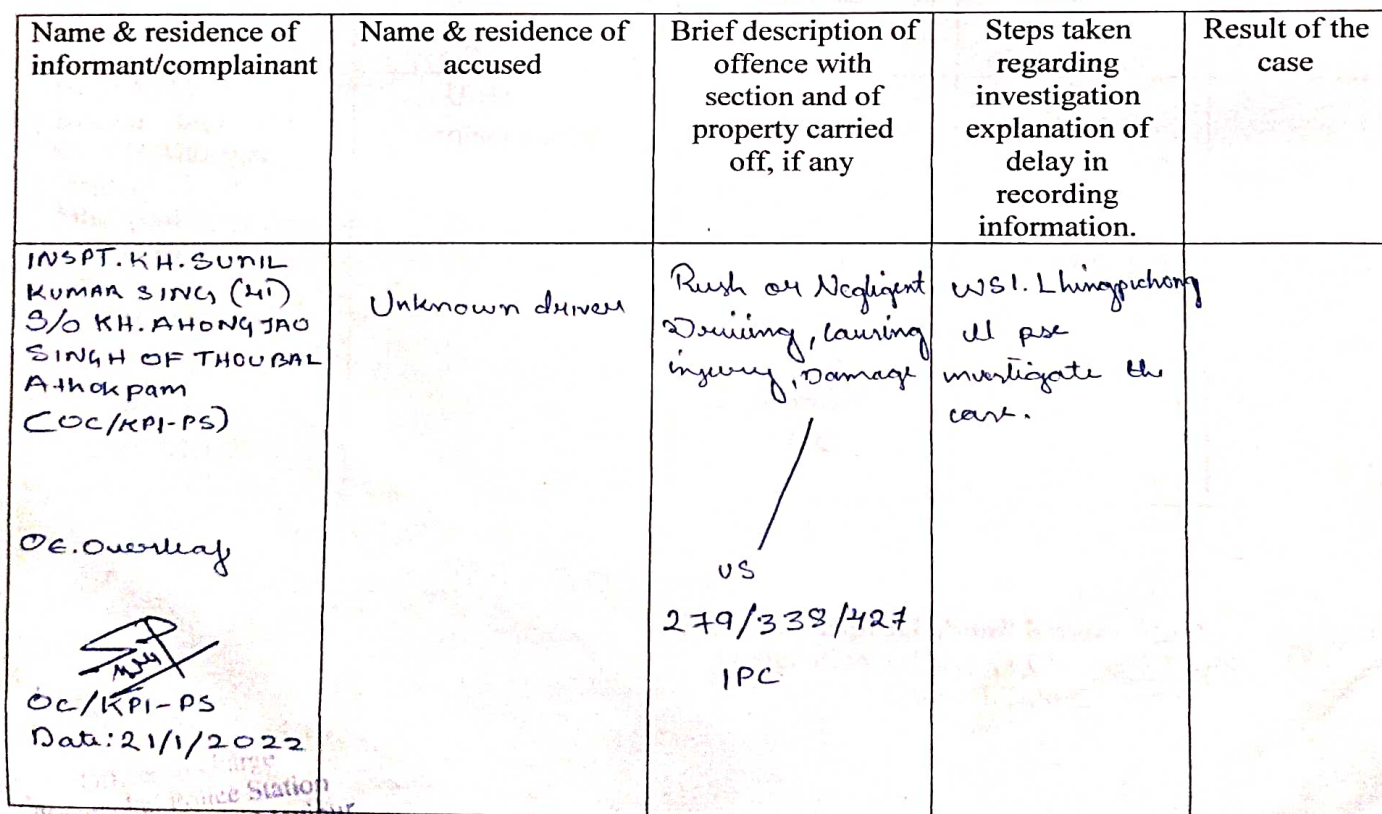 Name & residence of
informant/complainant
Name & residence of
accused
Brief description of
offence with
section and of
property carried
off, if any
Steps taken
regarding
investigation
explanation of
delay in
recording
information.
Result of the
case
INSPT. KH. SUNIL
KUMAR SING (41)
S/O KH. AHONGJAO
SINGH OF THOUBAL
Athokpam
(OC/KPI-PS)
OE. Overleaf
OC/KPI-PS
Date: 21/1/2022
Police Station
Unknown driver
Rush or Negligent
Driving, causing
injury, Damage
US
279/338/427
IPC
WSI. Lhingpichong
investigate the
case.